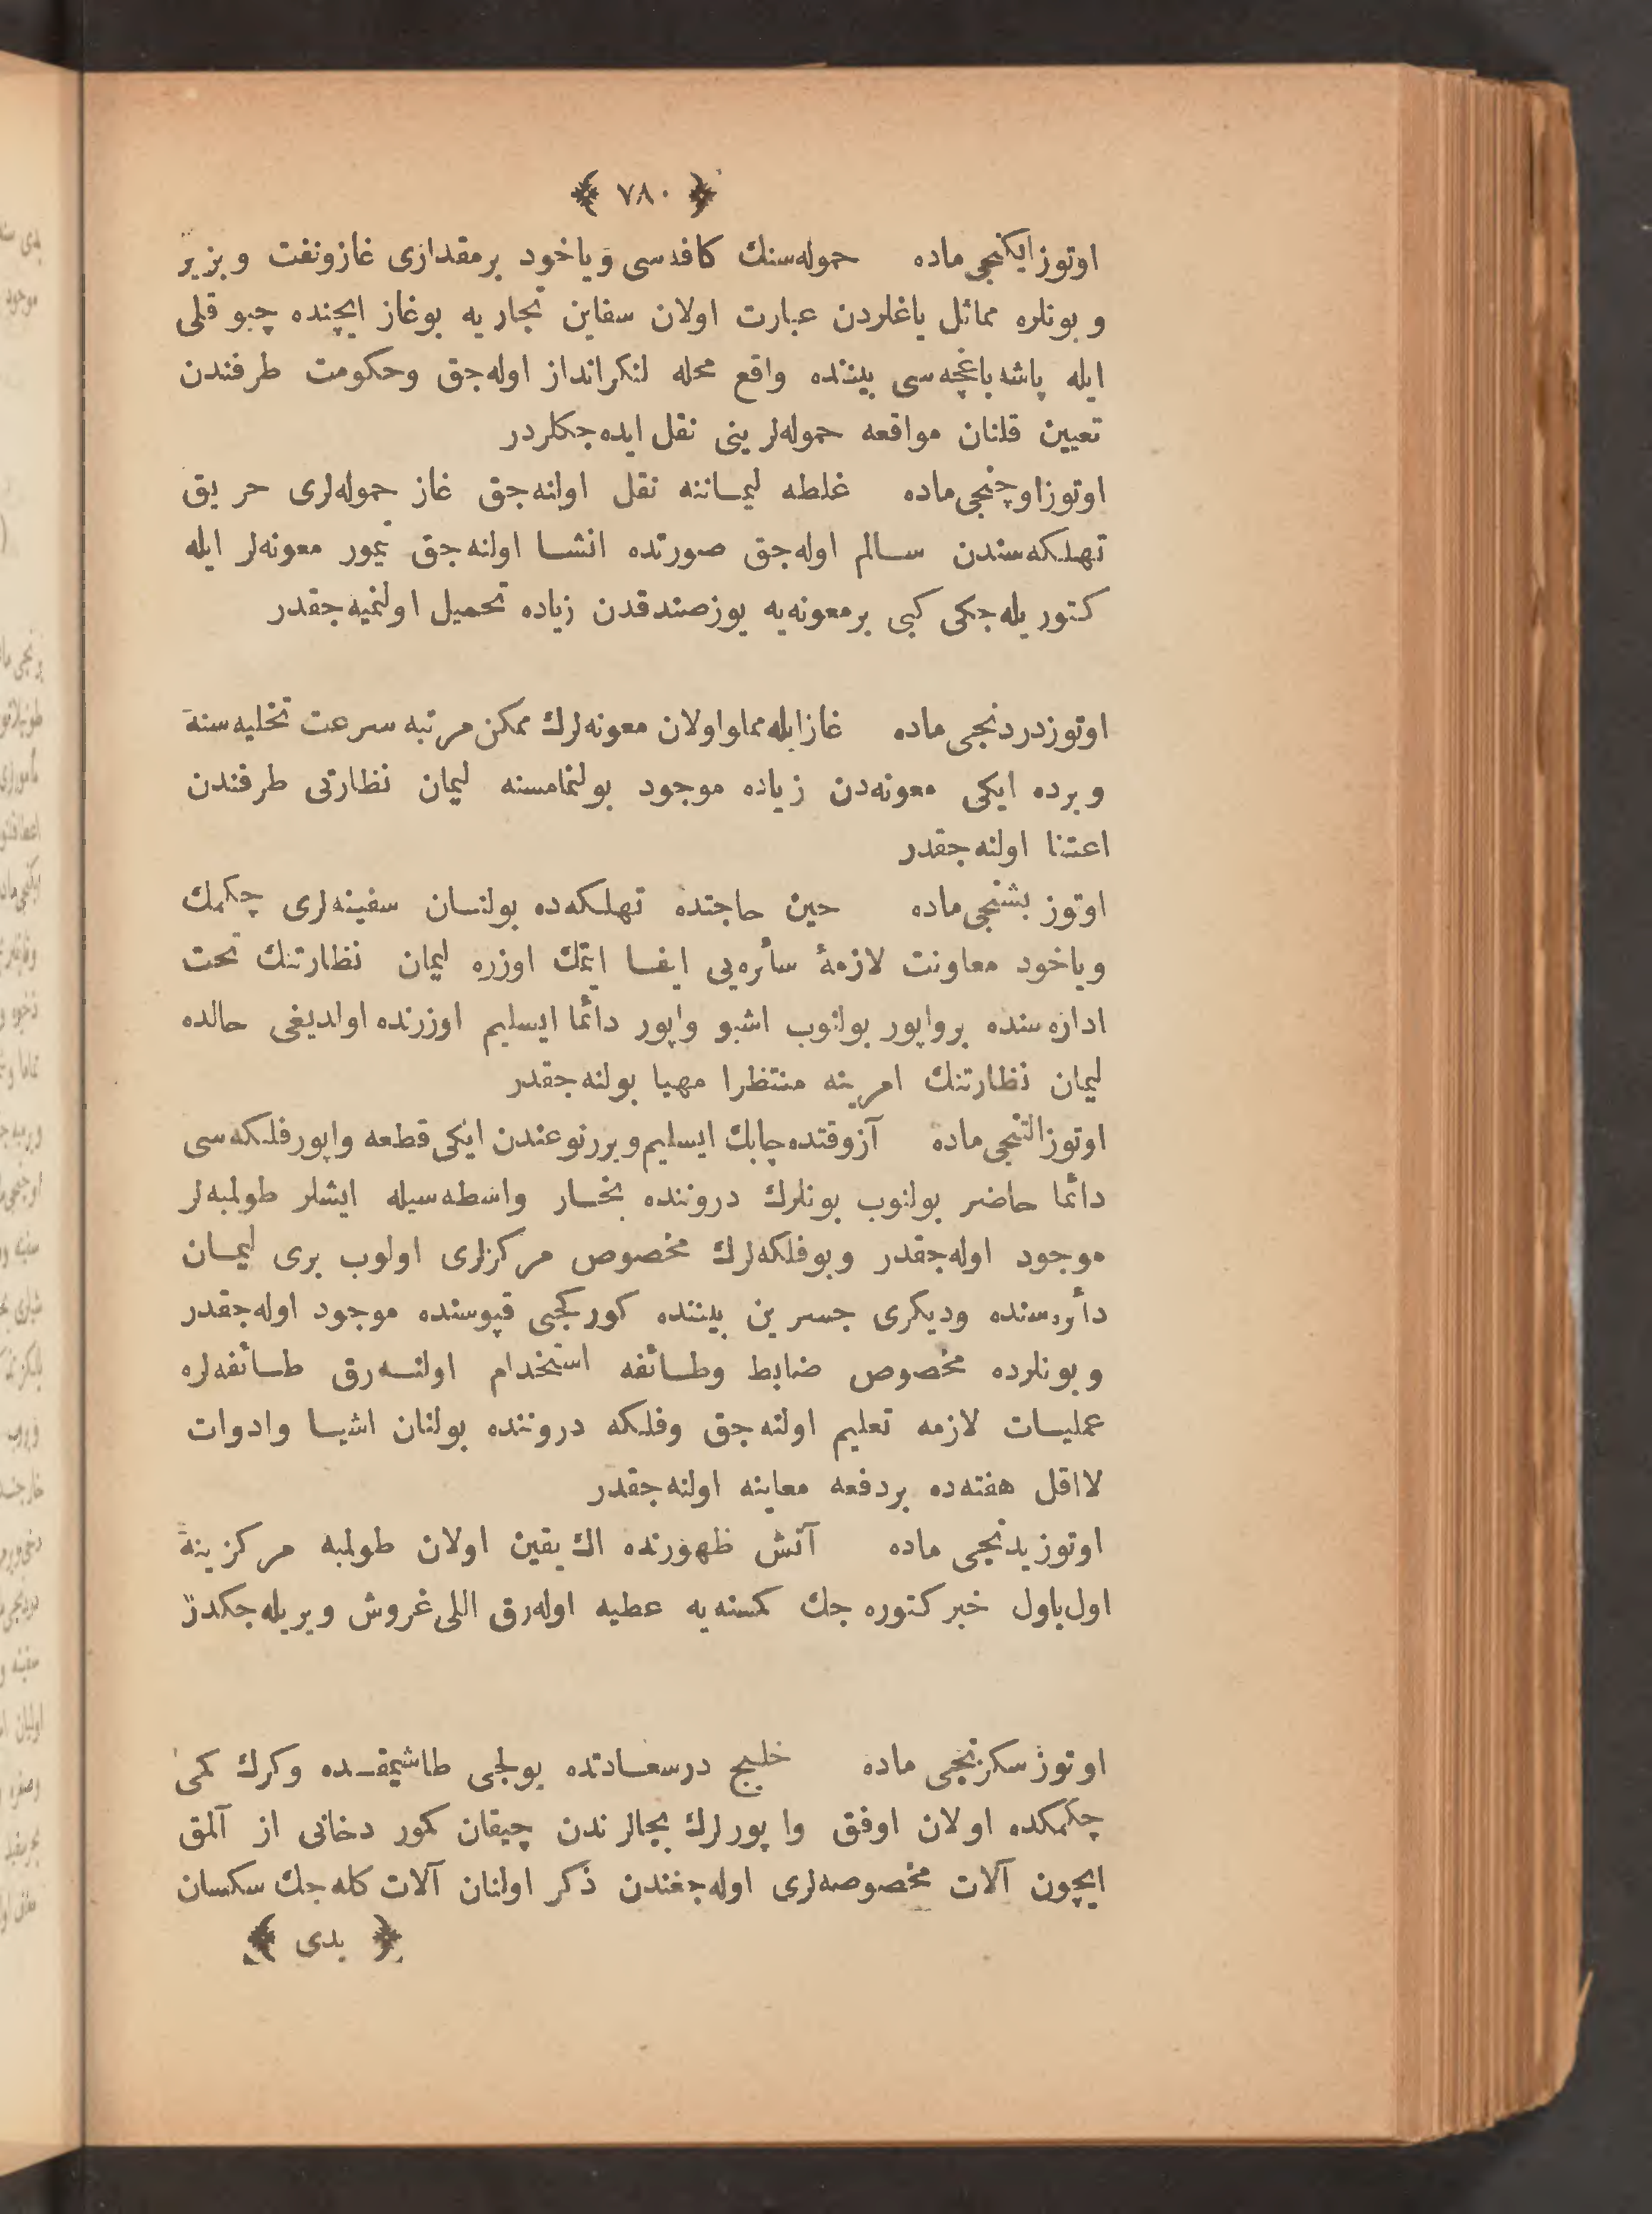 ﴿ ٧٨٠ ﴾
اوتوز ایکنجی ماده حموله‌سنك كافه‌سی ویاخود بر مقداری غاز ونفت و بزیر
و بونلره مماثل یاغلردن عبارت اولان سفاین تجاریه بوغاز ایچنده چبوقلی
ایله پاشه‌باغچه‌سی بیننده واقع محله لنکرانداز اوله‌جق وحکومت طرفندن
تعیین قلنان مواقعه حموله‌لرینی نقل ایده‌جکلردر
اوتوز اوچنجی ماده غلطه لیماننه نقل اولنه‌جق غاز حموله‌لری حریق
تهلکه‌سندن سالم اوله‌جق صورتده انشا اولنه‌جق تیمور معونه‌لر ایله
کتوریله‌جکی کبی بر معونه‌یه یوز صندقدن زیاده تحمیل اولنمیه‌جقدر
اوتوز دردنجی ماده غاز ایله مملو اولان معونه‌لرك ممکن مرتبه سرعت تخلیه‌سنه
و برده ایکی معونه‌دن زیاده موجود بولنمامسنه لیمان نظارتی طرفندن
اعتنا اولنه‌جقدر
اوتوز بشنجی ماده حین حاجتده تهلکه‌ده بولنان سفینه‌لری چکمك
ویاخود معاونت لازمهٔ سائره‌یی ایفا ایتمك اوزره لیمان نظارتنك تحت
اداره‌سنده بر واپور بولنوب اشبو واپور دائما ایسلیم اوزرنده اولدیغی حالده
لیمان نظارتنك امرینه منتظرا مهیا بولنه‌جقدر
اوتوز التنجی ماده آز وقتده چابك ایسلیم ویرر نوعندن ایکی قطعه واپور فلکه‌سی
دائما حاضر بولنوب بونلرك دروننده بخار واسطه‌سیله ایشلر طولمبه‌لر
موجود اوله‌جقدر و بو فلکه‌لرك مخصوص مرکزلری اولوب بری لیمان
دائره‌سنده ودیکری جسرین بیننده کورکجی قپوسنده موجود اوله‌جقدر
و بونلرده مخصوص ضابط وطائفه استخدام اولنه‌رق طائفه‌لره
عملیات لازمه تعلیم اولنه‌جق وفلکه دروننده بولنان اشیا وادوات
لااقل هفته‌ده بر دفعه معاینه اولنه‌جقدر
اوتوز یدنجی ماده آتش ظهورنده اك یقین اولان طولمبه مرکزینه
اول باول خبر کتوره‌جك کمسنه‌یه عطیه اوله‌رق اللی غروش ویریله‌جکدر
اوتوز سکزنجی ماده خلیج درسعادتده یولجی طاشیمقده وکرك کمی
چکمکده اولان اوفق واپورلرك بجالرندن چیقان کمور دخانی از آلمق
ایچون آلات مخصوصه‌لری اوله‌جغندن ذکر اولنان آلات کله‌جك سکسان
﴿ یدی ﴾